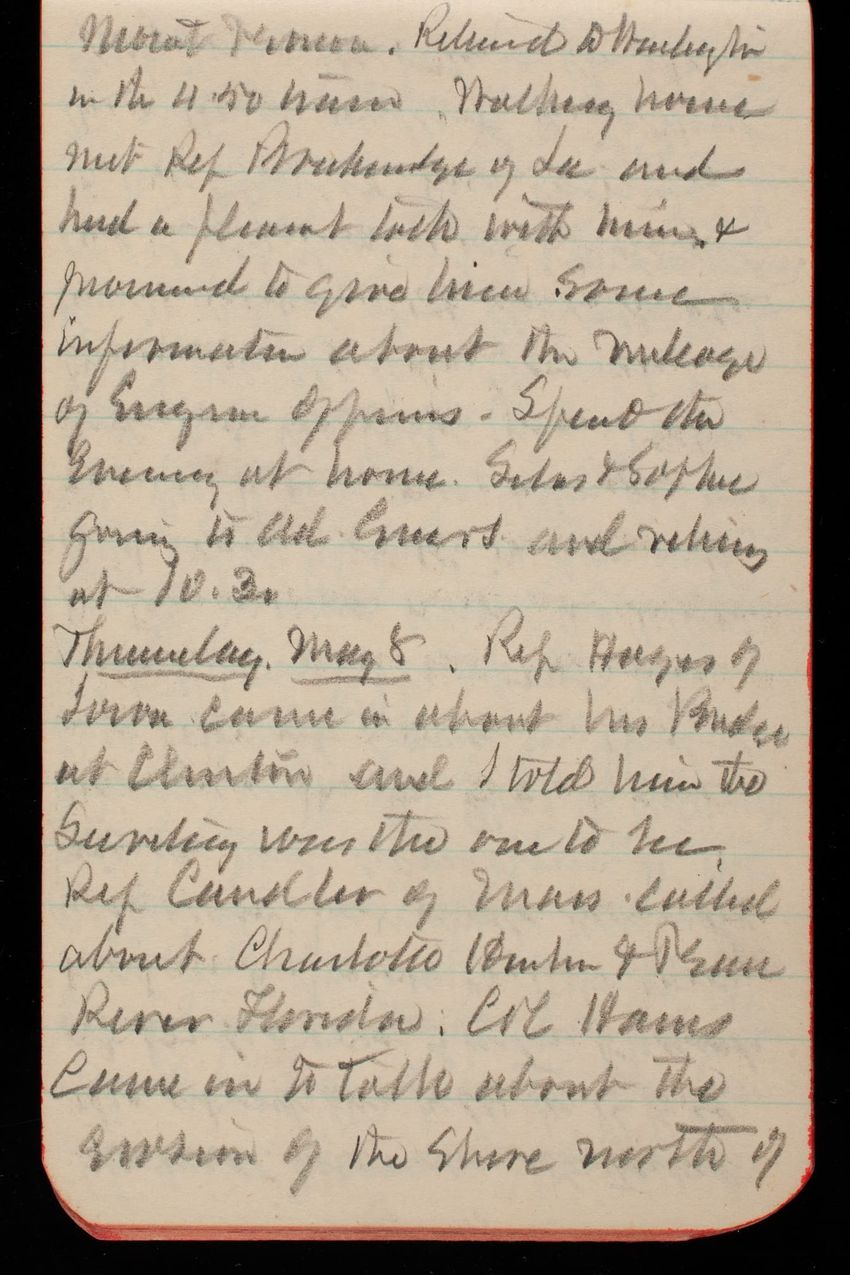 Mount Vernon. Returned to Washington
in the 4.50 train. Walking home
met Rep Breckenridge of and
had a pleasant talk with him &
promised to give him some
information about the mileage
of Engineer Officers. Spent the
Evening at home. Silas & Sophie
going to Ad. Greers and retiring
at 10.30
Thursday, May 8. Rep Hayes of
Iowa came in about his Bridge
at Clinton and I told him the
Secretary was the one to see.
Rep Candler of Mass. called
about Charlotte Harbor & Pease
River Florida. Col Hains
Came in to talk about the
erosion of the Shore north of